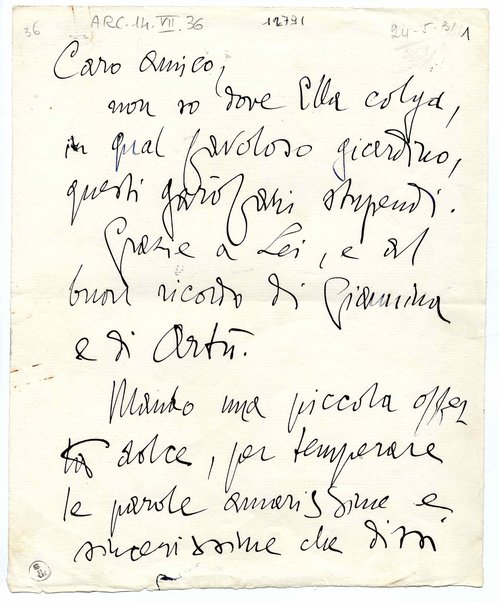 36 ARC.14.VII.36 12791 24-5-31 1
Caro amico,
non so dove Ella colga,
in qual favoloso giardino,
questi garofani stupendi.
Grazie a Lei, e al
buon ricordo di Giannina
e di Artù.
Mando una piccola offer
ta dolce, per temperare
le parole amarissime e
sincerissime che dissi